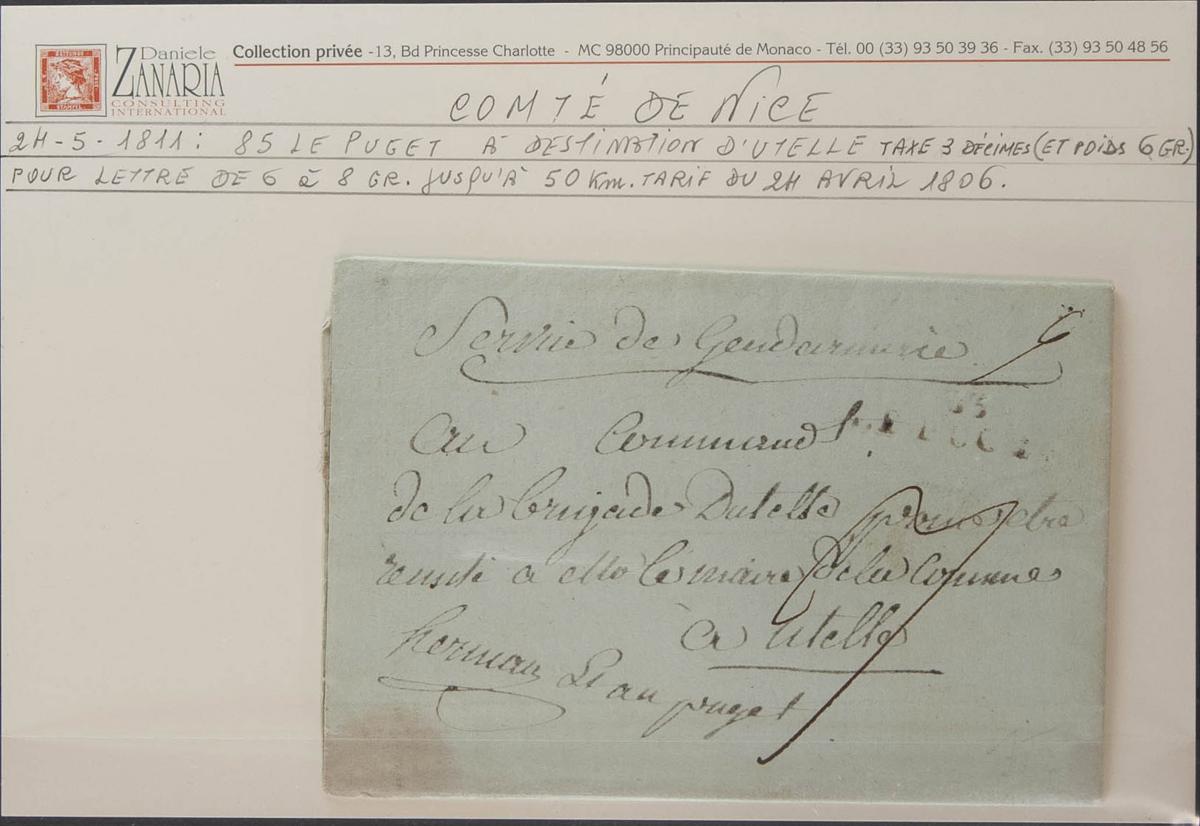 Daniele
ZANARIA
CONSULTING
INTERNATIONAL
Collection privée - 13, Bd Princesse Charlotte - MC 98000 Principauté de Monaco - Tél. 00 (33) 93 50 39 36 - Fax. (33) 93 50 48 56
COMTÉ DE NICE
24-5-1811: 85 LE PUGET À DESTINATION D'UTELLE TAXE 3 DÉCIMES (ET POIDS 6 GR.)
POUR LETTRE DE 6 à 8 GR. JUSQU'À 50 Km. TARIF DU 24 AVRIL 1806.
Service de Gendarmerie
6
au Command t
de la brigade Dutelle pour etre
remite a Mo le maire de la Commune
à utelle
herman Lt au puget